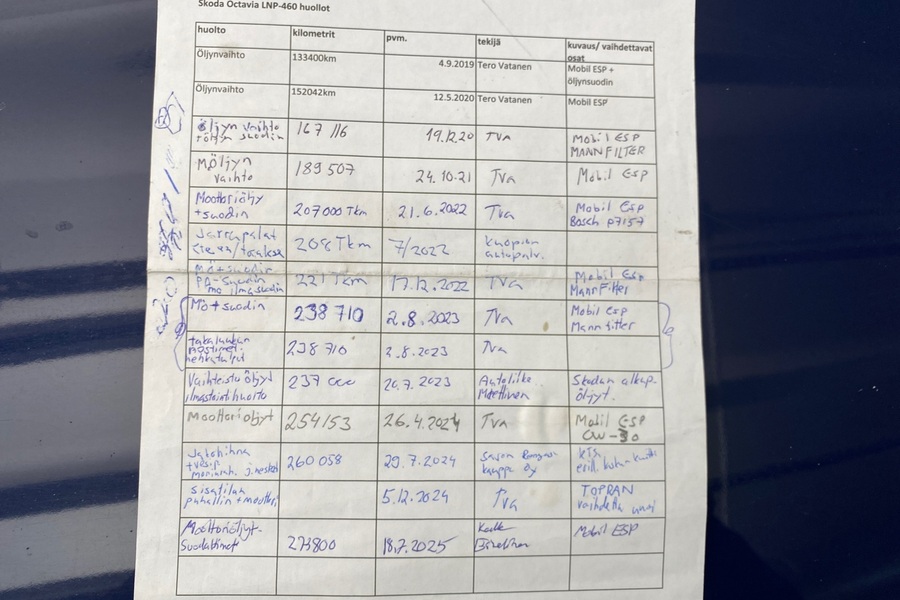 Skoda Octavia LNP-460 huollot
huolto kilometrit pvm. tekijä kuvaus/ vaihdettavat
osat
Öljynvaihto 133400km 4.9.2019 Tero Vatanen Mobil ESP +
öljynsuodin
Öljynvaihto 152042km 12.5.2020 Tero Vatanen Mobil ESP
öljyn vaihto 167 116 19.12.20 TVA Mobil ESP
suodin MANN FILTER
Möljyn 189 507 24.10.21 Tva Mobil ESP
vaihto
Moottoriöljy 207000 Tkm 21.6.2022 Tva Mobil Esp
+suodin Bosch P7157
Jarrupalat 208 Tkm 7/2022 Kuopion
autopalv.
Mö+suodin 221 Tkm 17.12.2022 TVA Mobil Esp
mo ilmasuodin Mann Filter
Mö+suodin 238 710 2.8.2023 Tva Mobil esp
Mann filter
takaluukun 238 710 2.8.2023 Tva
Vaihteistoöljyt 237 000 20.7.2023 Autoliike Skodan alkup.
ilmastoint huolto Miettinen öljyt.
Moottoriöljyt 254153 26.4.2024 Tva Mobil ESP
OW-30
Jakohihna 260 058 29.7.2024 Savon
+vesip. kauppa Oy
Sisätilan 5.12.2024 Tva TOPRAN
puhallin+moottori vaihdettu uusi
Moottoriöljyt 273800 18.7.2025 Mobil ESP
Suodattimet